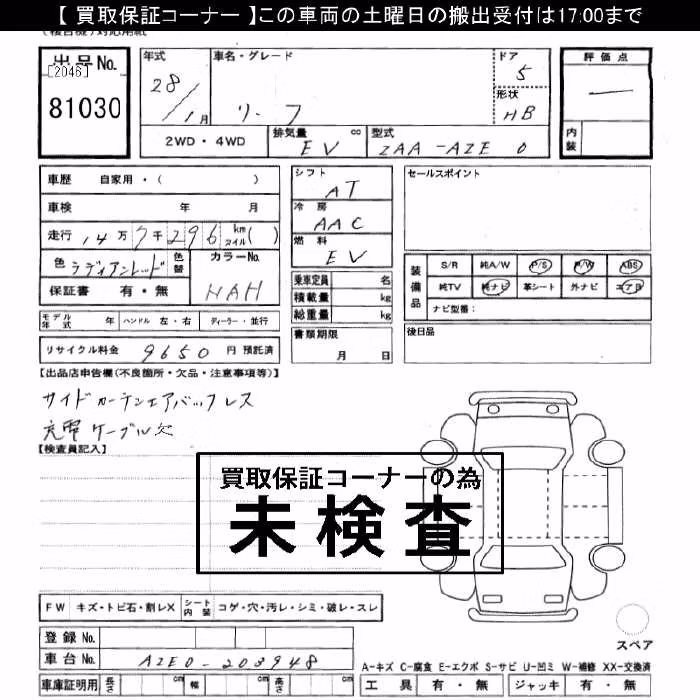 【 買取保証コーナー 】この車両の土曜日の搬出受付は17:00まで
出品No.
[2046]
81030
年式
28/1月
車名・グレード
リーフ
ドア
5
形状
HB
評価点
—
内装
2WD・4WD
排気量 EV cc
型式 ZAA-AZE0
車歴 自家用・( )
車検 年 月
走行 14万7千296 km マイル( )
色 ラディアントレッド
色替
カラーNo.
NAH
保証書 有・無
シフト AT
冷房 AAC
燃料 EV
乗車定員 名
積載量 kg
総重量 kg
セールスポイント
装備品
S/R 純A/W P/S P/W ABS
純TV 純ナビ 革シート 外ナビ エアB
ナビ型番:
モデル年式 年
ハンドル 左・右
ディーラー・並行
書類期限
月 日
後日品
リサイクル料金 9650 円 預託済
【出品店申告欄(不良箇所・欠品・注意事項等)】
サイドカーテンエアバックレス
充電ケーブル欠
【検査員記入】
買取保証コーナーの為
未検査
FW キズ・トビ石・割レX
シート内装 コゲ・穴・汚レ・シミ・破レ・スレ
登録 No.
車台 No. AZE0-203948
車庫証明用 長さ cm 幅 cm 高さ cm
スペア
A-キズ C-腐食 E-エクボ S-サビ U-凹ミ W-補修 XX-交換済
工具 有・無 ジャッキ 有・無